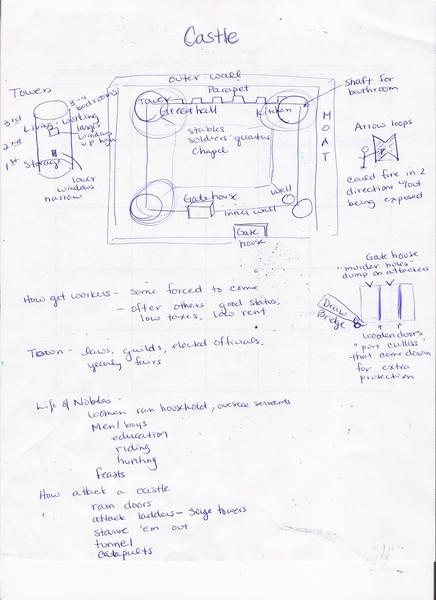 Castle
Towers
3rd
2nd
1st
3-4
bedrooms
Living, working
larger
windows
up high
Storage
lower
windows
narrow
outer wall
Parapet
Tower
Great hall
Kitchen
stables
soldiers' quarters
Chapel
Gatehouse
inner wall
well
Gate
house
MOAT
shaft for
bathroom
Arrow loops
could fire in 2
direction w/out
being exposed
Gate house
"murder holes"
dump on attackers
Draw
Bridge
wooden doors
"port cullis"
that come down
for extra
protection
How get workers - some forced to come
- offer others good status,
low taxes, low rent
Town - laws, guilds, elected officials,
yearly fairs
Life of Nobles -
women ran household, oversee servants
Men/boys
education
riding
hunting
feasts
How attack a castle
ram doors
attack ladders - seige towers
starve 'em out
tunnel
catapults